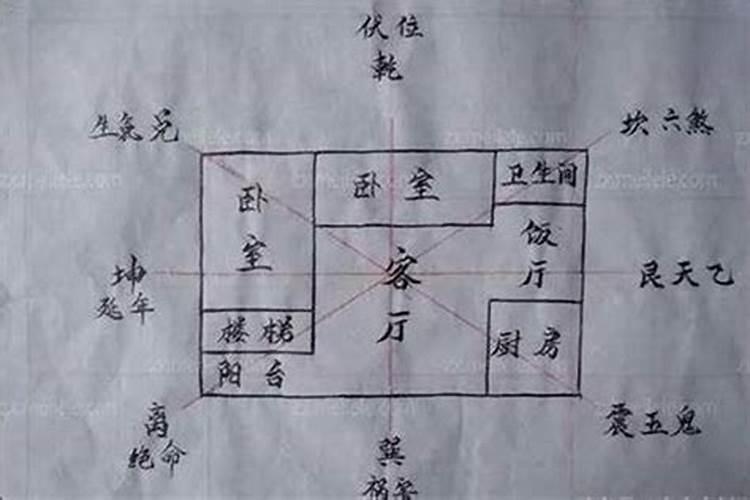 伏位
乾
生气兑
坎六煞
卧室
卧室
卫生间
饭厅
坤
延年
客厅
艮天乙
楼梯
厨房
阳台
离
绝命
震五鬼
巽
祸害